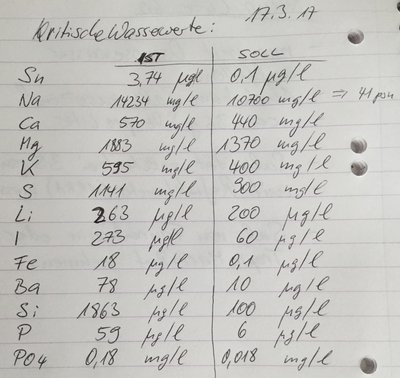 17.3.17
Kritische Wasserwerte:
IST SOLL
Sn 3,74 µg/l 0,1 µg/l
Na 14234 mg/l 10700 mg/l => 41 psu
Ca 570 mg/l 440 mg/l
Mg 1883 mg/l 1370 mg/l
K 595 mg/l 400 mg/l
S 1141 mg/l 900 mg/l
Li 263 µg/l 200 µg/l
I 273 µg/l 60 µg/l
Fe 18 µg/l 0,1 µg/l
Ba 78 µg/l 10 µg/l
Si 1863 µg/l 100 µg/l
P 59 µg/l 6 µg/l
PO4 0,18 mg/l 0,018 mg/l